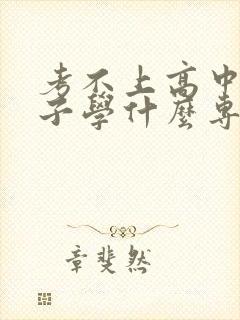 考不上高中
子學什麼專
章斐然